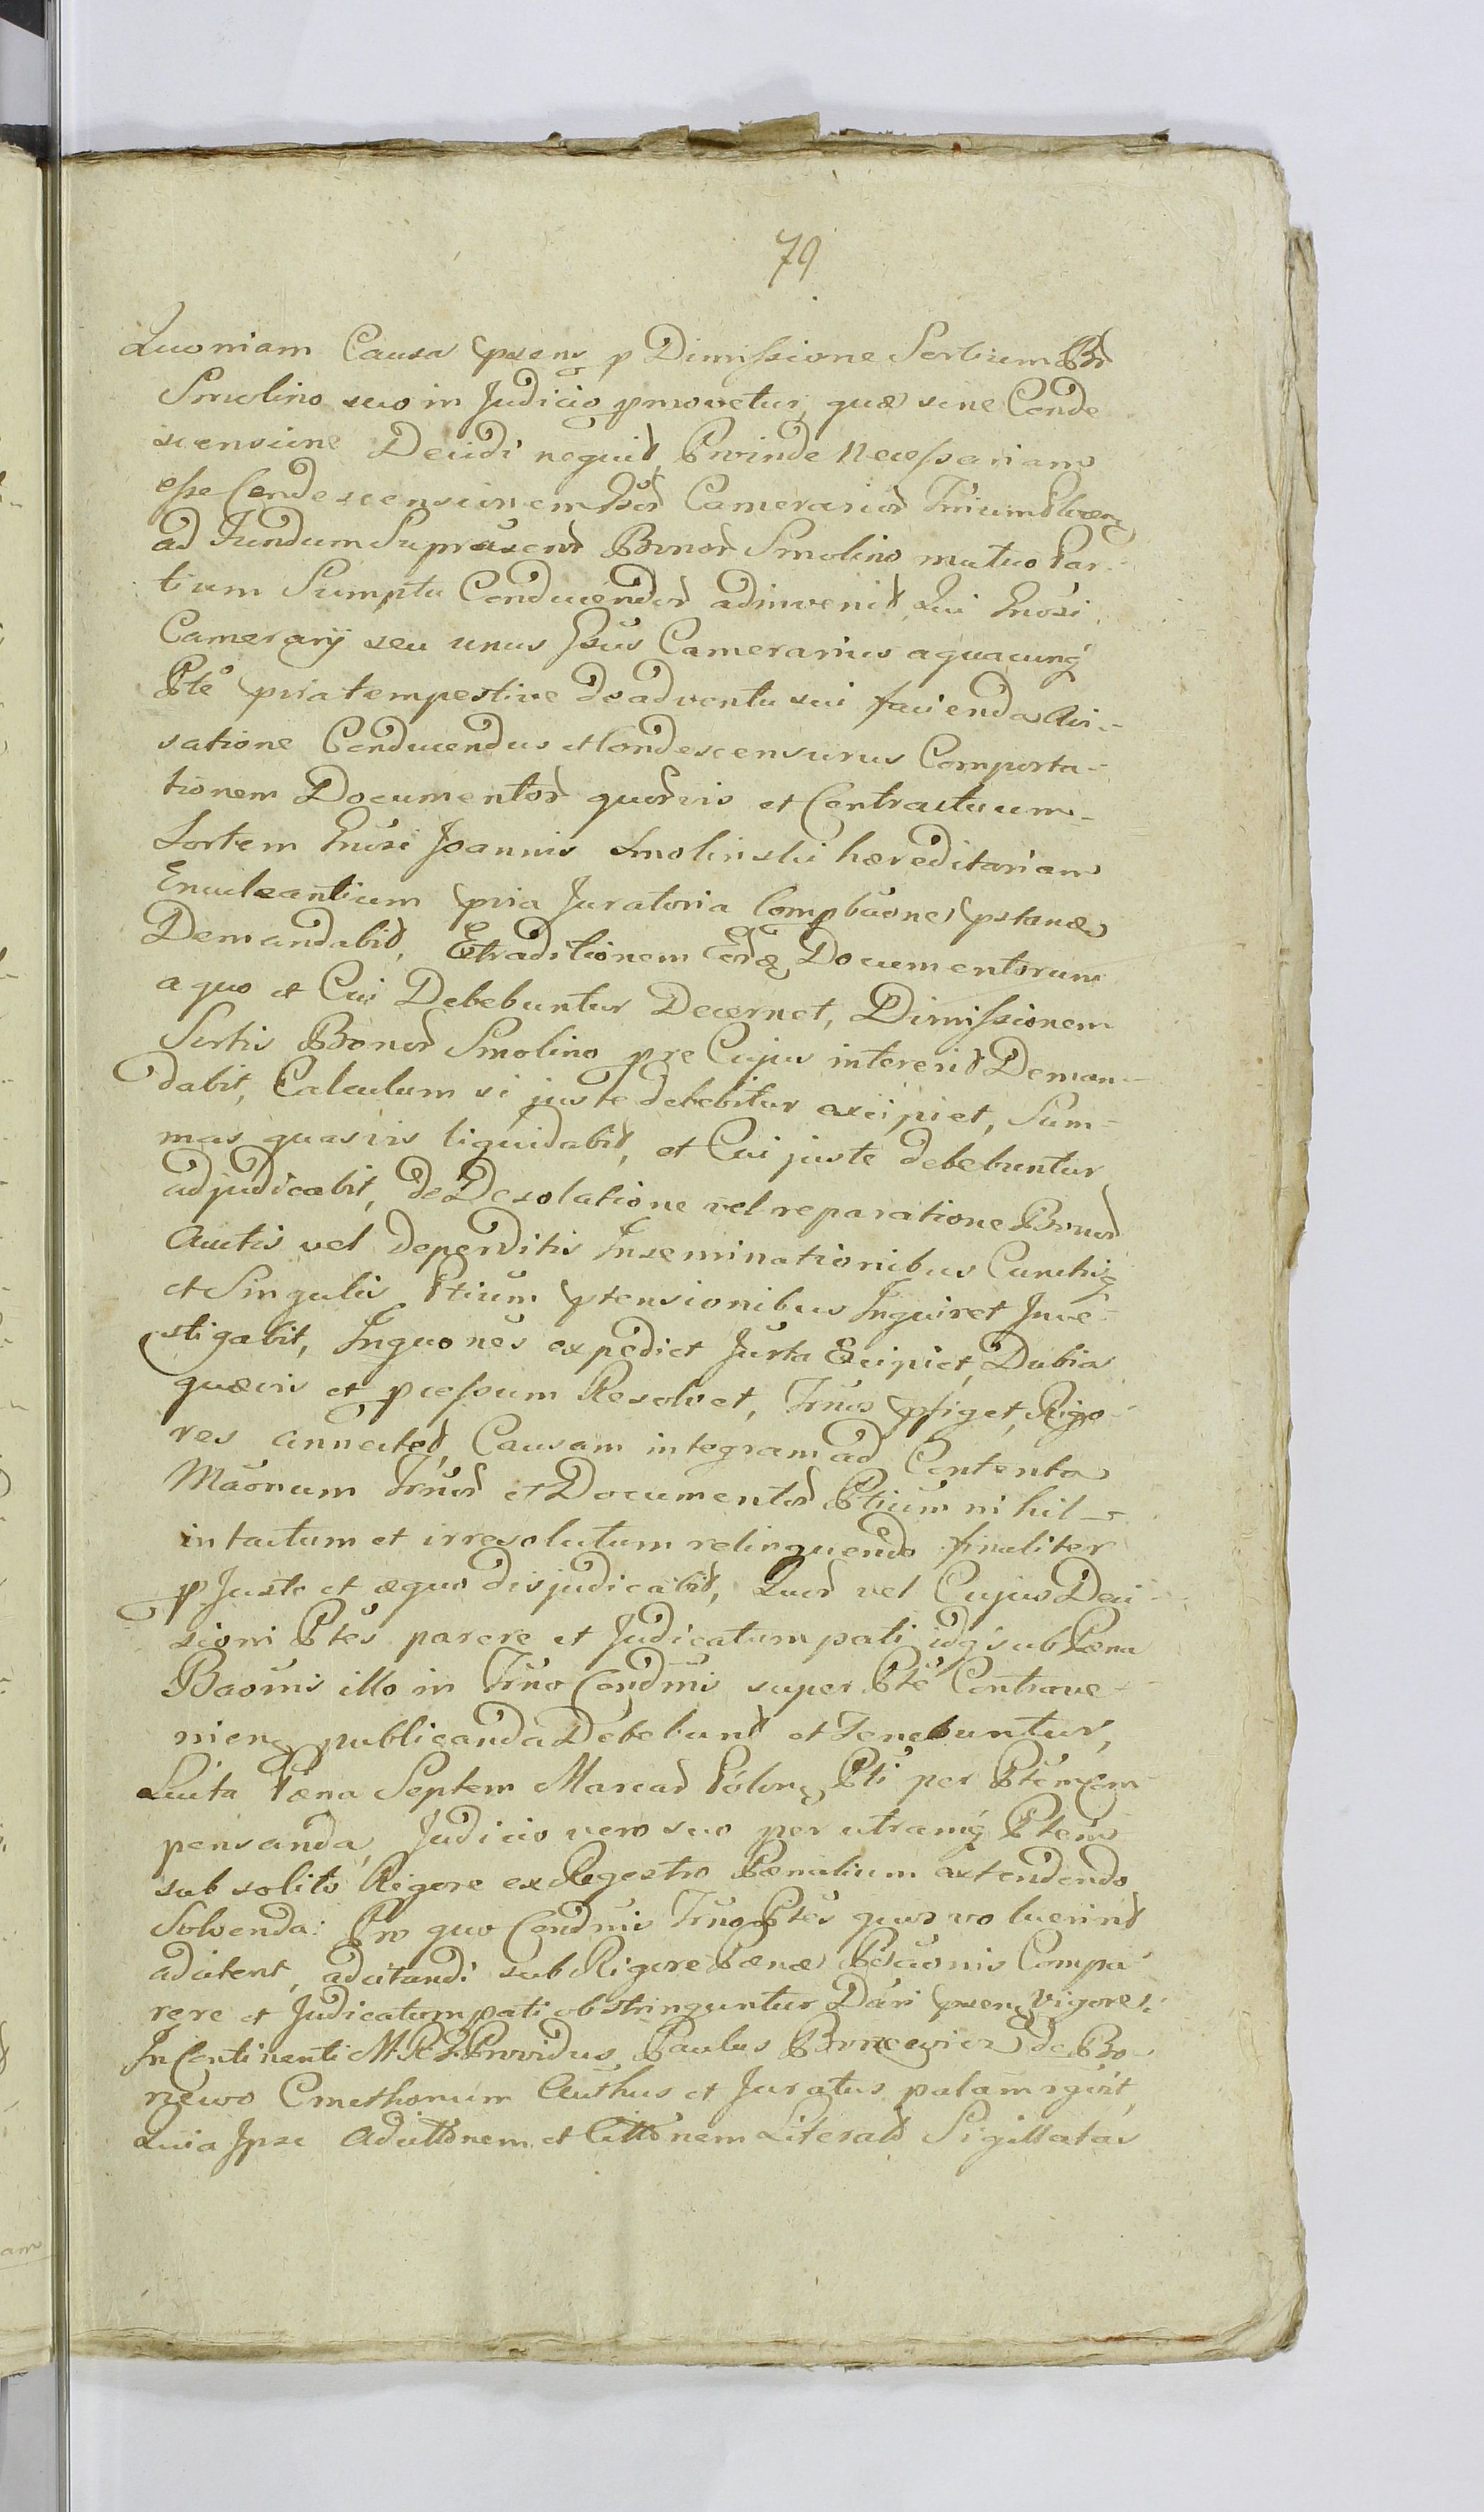 79
Quoniam Causa prsens p Dimissione Sortium Bnr
Smolino suo in Judicio pmovetur, quæ sine Conde
scensione Decidi nequit, Proinde Necessariam
esse Condescensionem Camerarior Trium
ad Fundum Suprascrd Bonor Smolino mutuo Par-
tium Sumptu Conducendor adinvenit, Qui Gnosi
Camerarij seu unus Camerarius a quacunq
Pte pvia tempestive de adventu sui facienda Avi-
satione Conducendus et Condescensurus Comporta-
tionem Documentor quorvis et Contractuum
Sortem Gnosi Joannis Smolinski hæreditariam
Enucleantium pvia Juratoria Compbaone
Demandabit, Extraditionem Documentorum
a quo et Cui Debebuntur Decernet, Dimissionem
Sortis Bonor Smolino pro Cujus intererit Deman-
dabit, Calculum si juste debebitur excipiet, Sum-
mas quasvis liquidabit, et Cui juste debebuntur
adjudicabit, de Desolatione vel reparatione Bonor
Auctis vel deperditis Inseminationibus Cunctisq
et Singulis Ptium ptensionibus Inquiret Inve-
stigabit, Inquones expediet Jurta Excipiet, Dubia
quævis et pcessum Resolvet, Trnos pfiget, Rigo-
res annectet, Causam integram ad Contenta
Maonum Trnor et Documentor Ptium nihil
intactum et irresolutum relinquendo finaliter
p Juste et æquo disjudicabit, Quor vel Cujus Deci-
sioni Ptes parere et Judicatum pati idq sub Pæna
Baonis illo in Trno Condnis super Pte Contrave-
nien publicanda Debebunt et Tenebuntur,
Luita Pæna Septem Marcar Polon Pti per Ptem
pensanda, Judicio vero suo per utramq Ptem
sub solito Rigore ex Regestro Pænalium extendendo
Solvenda: Pro quo Condnis Trno Ptes quos voluerint
adcitent, adcitandi sub Rigore Pænæ Compa-
rere et Judicatum pati obstringuntur Dcri prsen Vigore.
In Continenti M. R. Providus Paulus de Bo-
newo Cmethonum Authus et Juratus palam rgvit,
Quia Ipse Adcittonem et Cittonem Literalr Sigillatas